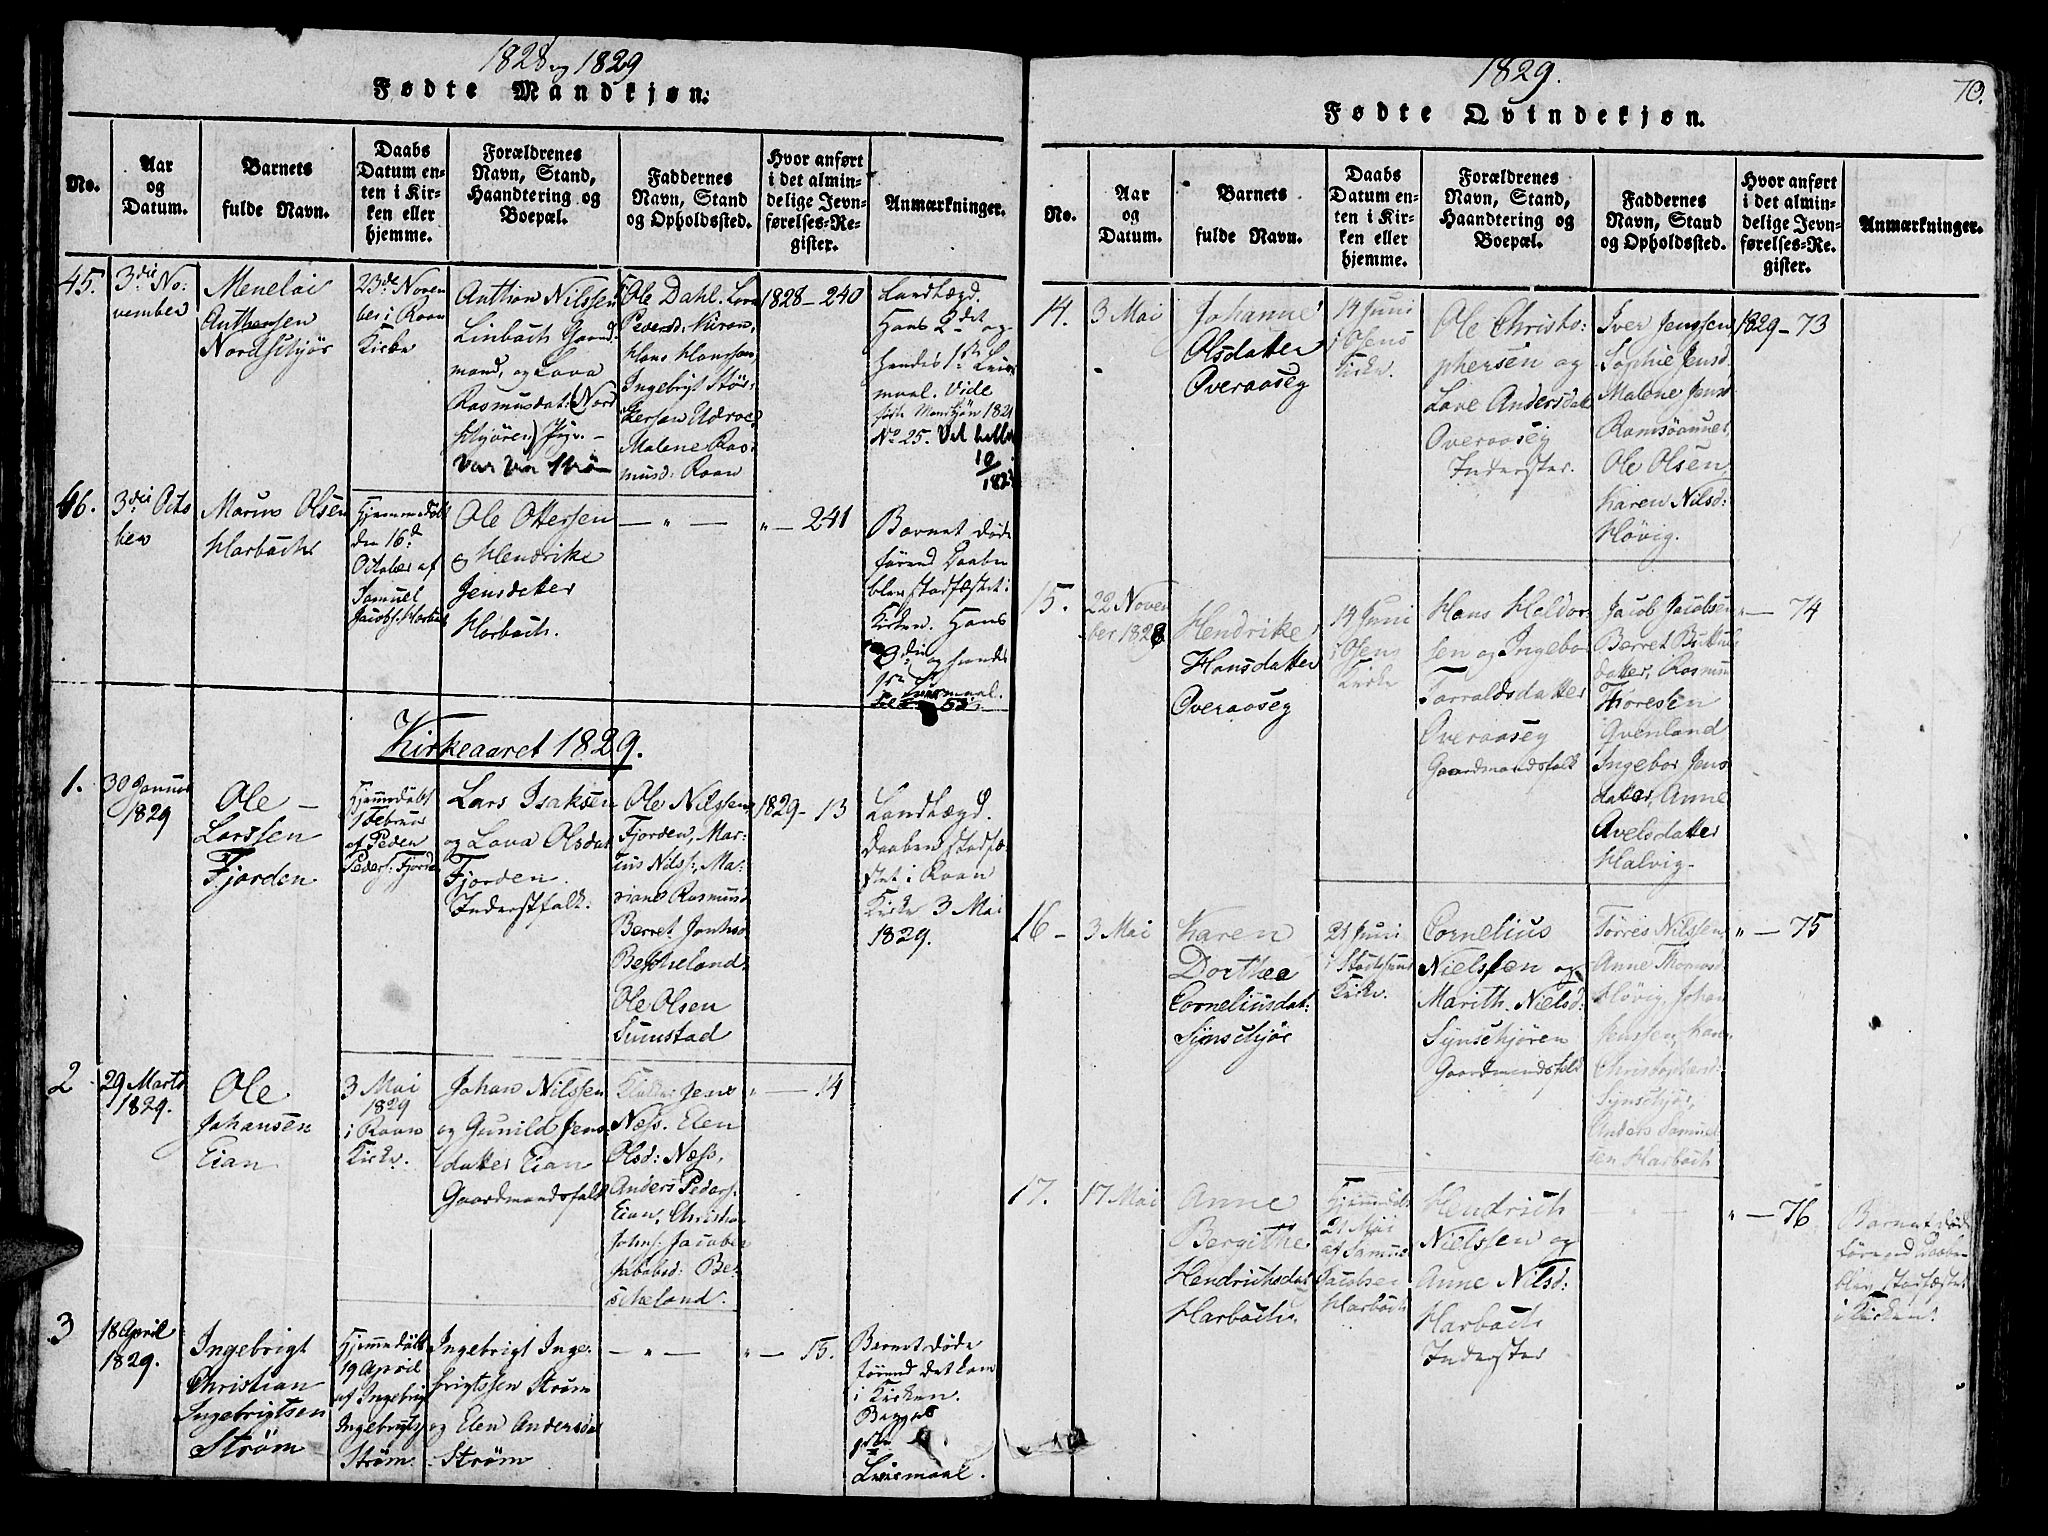 1828 og 1829
Fødte Mandkjøn:
No.
Aar
og
Datum.
Barnets
fulde Navn.
Daabs
Datum en-
ten i Kir-
ken eller
hjemme.
Forældrenes
Navn, Stand,
Haandtering og
Boepæl.
Faddernes
Navn, Stand
og Opholdssted.
Hvor anført
i det almin-
delige Jevn-
førelses-Re-
gister.
Anmærkninger.
45.
3die No-
vember
Menelai
Anthonsen
Nordskjør
23de Novem
ber i Roan
Kirke
Anthon Nilssen
Linbach Gaard
mand, og Lava
Rasmusdat: (Nord
skjøren) Pige. -
Ole Dahl. Lava
Peversd: Kiran,
Hans Hanssen
Ingebrigt Støs-
Malene Ras-
musd: Roan
1828-240
Landkægd.
Hans 2det og
hendes 1ste Leier
maal. Vide
født Mandkjøn 1821
No 25.
46.
3die Octo
ber
Marius Olsen
Harbach
Hjemmedøbt
den 16d
October af
Samuel
Jacobs. Harbach
Ole Ottersen
& Hendrike
Jensdatter
Harbach.
— " —
" — 241
Barnet døde
førend Daaben
blev stadfæstet i
Kirken. Hans
3die og hendes
1ste Leiermaal.
Kirkeaaret 1829.
1.
30 Januar
1829
Ole -
Larssen
Fjorden
Hjemmedøbt
1 Februar
af Peder
Peders: Fjorden
Lars Isaksen
og Lava Olsdat
Fjorden.
Inderstfolk.
Ole Nilssen
Fjorden, Mar-
ius Nilss:, Ma-
riane Rasmusd
Berret Jonhsd
Bescheland.
Ole Olsen
Sumstad
1829-13
Landkægd.
Daaben stadfæ-
stet i Roan
Kirke 3 Mai
1829.
2
29 Marts
1829.
Ole
Johansen
Eian
3 Mai
1829
i Roan
Kirke.
Johan Nilssen
og Gunild Jens-
datter Eian
Gaardmandsfolk
Klokker Jens
Næss. Elen
Olsd: Næss,
Anders Peders:
Eian, Christian
Johns: Jacober
Jakobsd: Be-
scheland.
" — 14
3
18 April
1829.
Ingebrigt
Christian
Ingebrigtsen
Strøm
Hjemmedøbt
19 April
af Ingebrigt
Ingebrigts:
Strøm
Ingebrigt Inge-
brigtssen Strøm
og Elen Andersdat
Strøm
— " —
" — 15.
Barnet døde
førend det kom
i Kirken.
Begges
1ste
Leiermaal.
1829.
70.
Fødte Qvindekjøn.
No.
Aar
og
Datum.
Barnets
fulde Navn.
Daabs
Datum en-
ten i Kir-
ken eller
hjemme.
Forældrenes
Navn, Stand,
Haandtering og
Boepæl.
Faddernes
Navn, Stand
og Opholdssted.
Hvor anført
i det almin-
delige Jevn-
førelses-Re-
gister.
Anmærkninger.
14.
3 Mai
Johanne
Olsdatter
Overaaseg
14 Juni
i Osens
Kirke.
Ole Christo-
phersen og
Lave Andersdat
Overaaseg
Inderster.
Iver Jenssen,
Sophie Jensd
Malene Jensd
Ramsøaunet,
Ole Olsen
Karen Nilsd:
Høvig.
1829-73
15.
22 Novem
ber 1828
Hendrike
Hansdatter
Overaaseg
14 Juni
i Osens
Kirke
Hans Heldor-
sen og Ingebor
Torraldsdatter
Overaaseg
Gaardmandsfolk
Jacob Jacobsen
Berret
datter, Rasmus
Thoresen
Qvenland
Ingebor Jens
datter, Anne
Avelsdatter
Halvig.
" — 74
16 -
3 Mai
Karen
Dorthea
Corneliusdat:
Synschjør
21 Juni
i Stoksund
Kirke.
Cornelius
Nielssen og
Marith Nielsd:
Synschjøren
Gaardmandsfolk
Torres Nilssen,
Anne Thomasd
Høvig, Johan
Jenssen, Karen
Christophersd:
Synschjør,
Anders Samuel
sen Harbach
" — 75
17.
17 Mai
Anne
Bergithe
Hendrichsdat
Harbach.
Hjemmedøbt
21 Mai
af Samuel
Jacobsen
Harbach
Hendrich
Nielssen og
Anne Nilsd:
Harbach
Inderster
— " —
" — 76
Barnet døde
førend Daaben
blev stadfæstet
i Kirken.